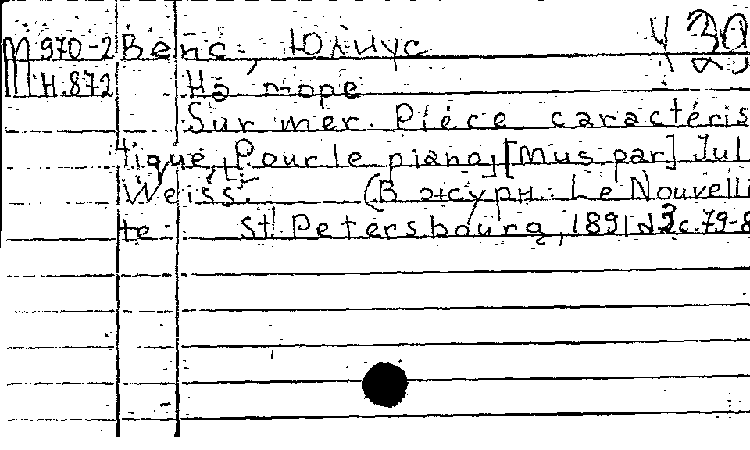 М 970-2 Вейс, Юлиус
Н.872 На море
Sur mer. Pièce caractéris
tique, Pour le piano, [Mus par] Jul
Weiss. (В журн. Le Nouvelli
te St. Petersbourg, 1891 с. 79-8